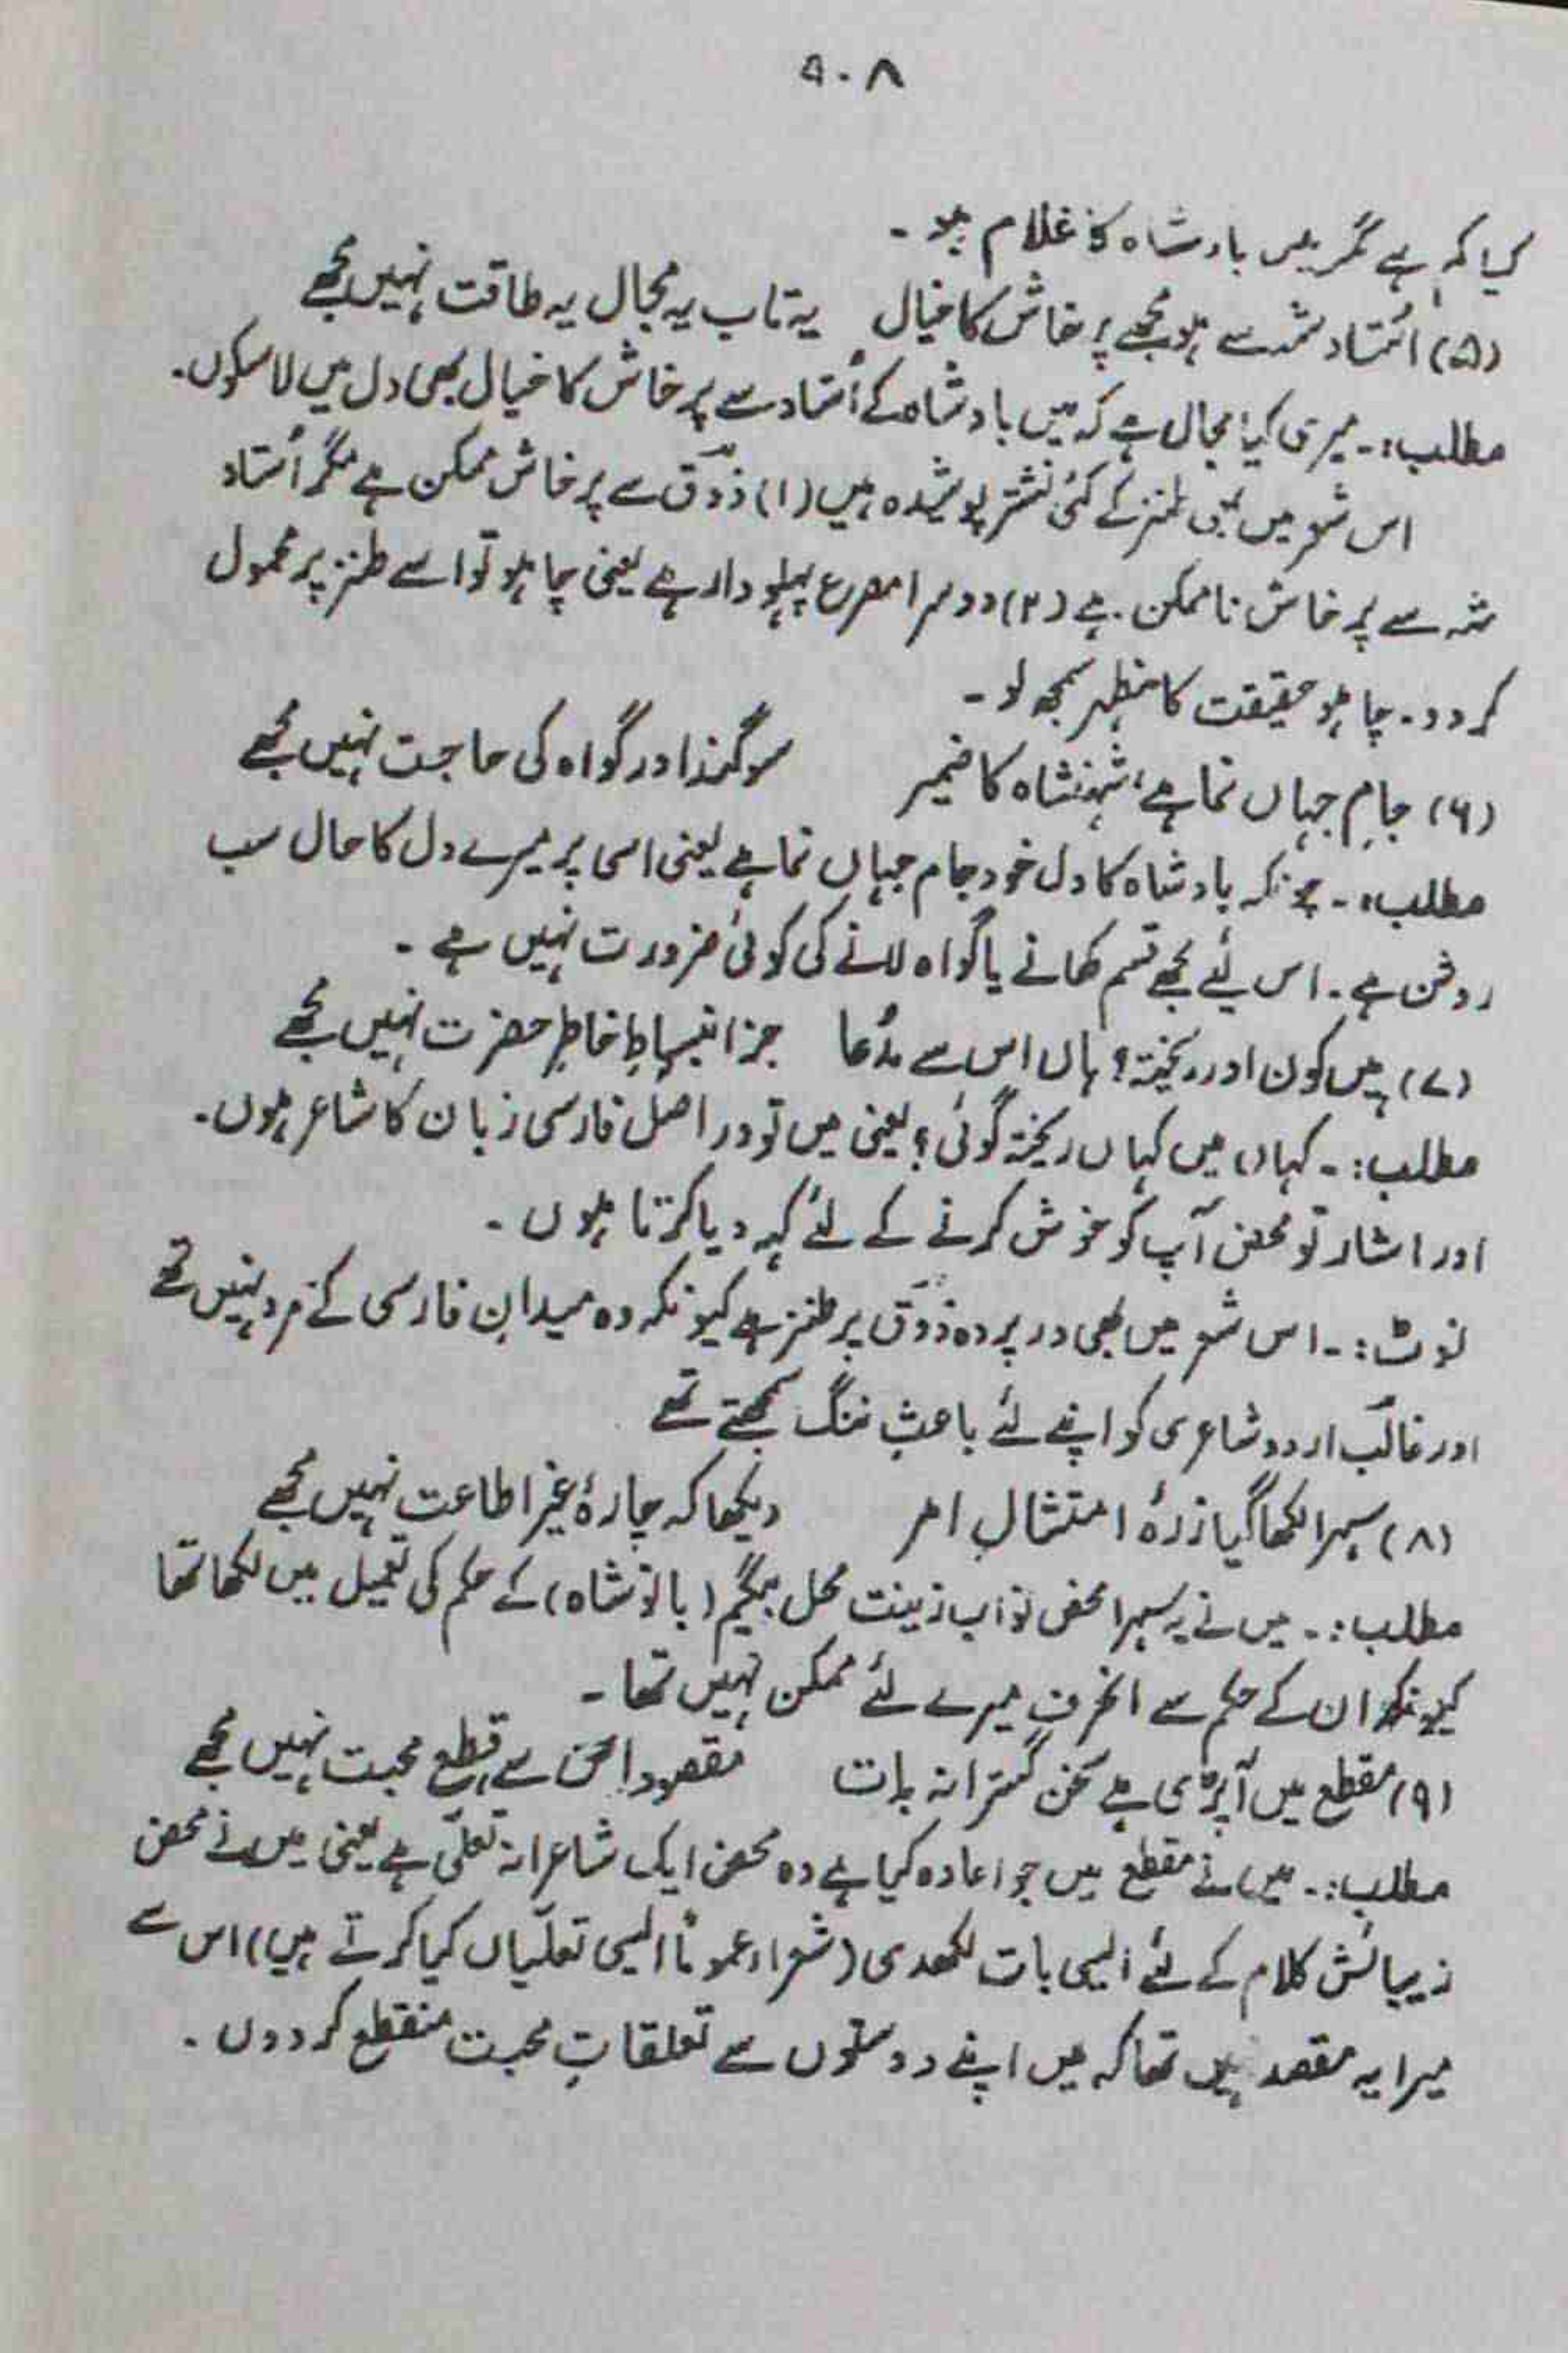 ۹۰۸
کیا کم ہے مگر میں بادشاہ کا غلام ہو۔
(۵) اُستاد شہ سے ہو مجھے پرخاش کا خیال یہ تاب یہ مجال یہ طاقت نہیں مجھے
مطلب:۔ میری کیا مجال ہے کہ میں بادشاہ کے اُستاد سے پرخاش کا خیال بھی دل میں لاسکوں۔
اس شعر میں بھی طنز کے کئی نشتر پوشیدہ ہیں (۱) ذوقؔ سے پرخاش ممکن ہے مگر اُستاد
شہ سے پرخاش ناممکن۔ ہے (۲) دوسرا مصرع پہلو دار ہے یعنی چاہو تو اسے طنز پر محمول
کردو۔ چاہو حقیقت کا مظہر سمجھ لو۔
(۶) جامِ جہاں نما ہے، شہنشاہ کا ضمیر سوگند اور گواہ کی حاجت نہیں مجھے
مطلب:۔ چونکہ بادشاہ کا دل خود جام جہاں نما ہے یعنی اسی پر میرے دل کا حال سب
روشن ہے۔ اس لئے مجھے قسم کھانے یا گواہ لانے کی کوئی ضرورت نہیں ہے۔
(۷) میں کون اور ریختہ؟ ہاں اس سے مدُعا جز انبساطِ خاطرِ حضرت نہیں مجھے
مطلب:۔ کہاں میں کہاں ریختہ گوئی؟ یعنی میں تو در اصل فارسی زبان کا شاعر ہوں۔
اور اشار تو محض آپ کو خوش کرنے کے لئے کہہ دیا کرتا ہوں۔
نوٹ:۔ اس شعر میں بھی در پردہ ذوقؔ پر طنز ہے کیونکہ وہ میدانِ فارسی کے مرد نہیں تھے
اور غالبؔ اردو شاعری کو اپنے لئے باعثِ ننگ سمجھتے تھے
(۸) سہرا لکھا گیا زرہُ امتثالِ امر دیکھا کہ چارۂ غیر اطاعت نہیں مجھے
مطلب:۔ میں نے یہ سہرا محض نواب زینت محل بیگم (بانو شاہ) کے حکم کی تعمیل میں لکھا تھا
کیونکہ ان کے حکم سے انحرف میرے لئے ممکن نہیں تھا۔
(۹) مقطع میں آپڑی ہے سخن گسترانہ بات مقصود اس سے قطع محبت نہیں مجھے
مطلب:۔ میں نے مقطع میں جو اعادہ کیا ہے وہ محض ایک شاعرانہ تعلّی ہے یعنی میں نے محض
زیبائش کلام کے لئے ایسی بات لکھدی (شعراء عموماً ایسی تعلّیاں کیا کرتے ہیں) اس سے
میرا یہ مقصد نہیں تھا کہ میں اپنے دوستوں سے تعلقاتِ محبت منقطع کردوں۔